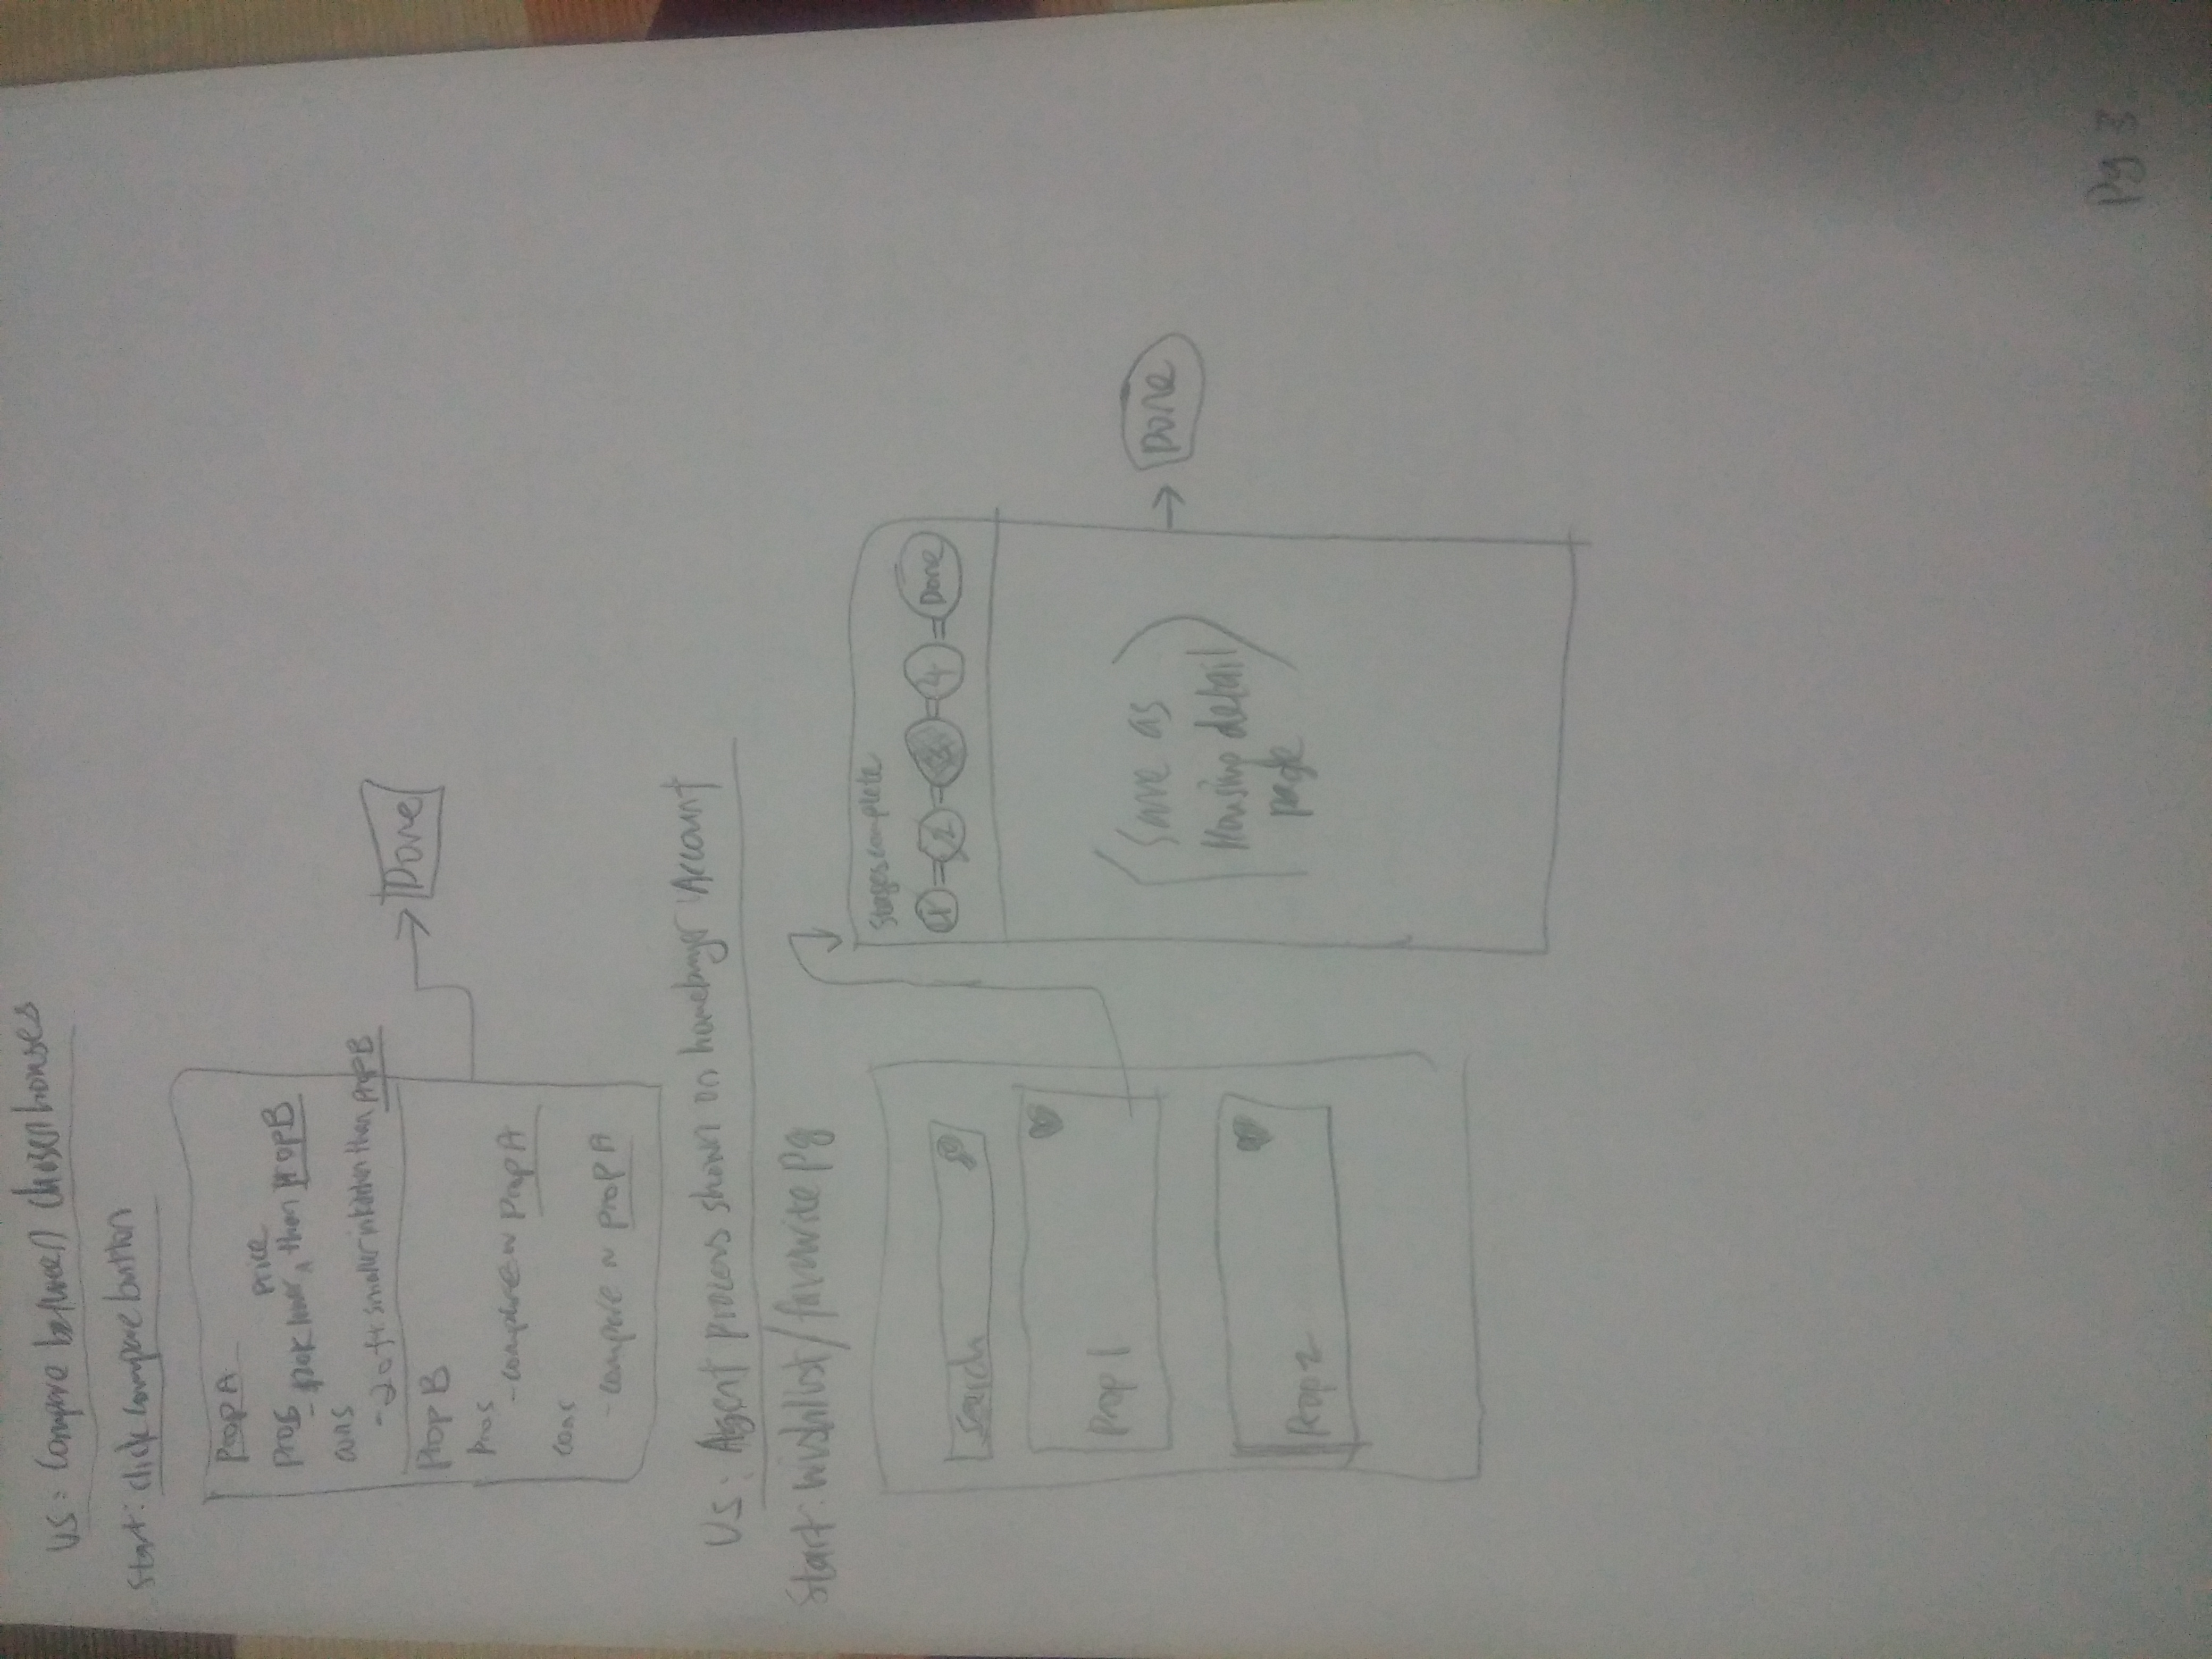 US: Compare between chosen houses
Start: click compare button
Prop A
Pros
price
lower ^ than Prop B
cons
- 20 ft smaller in kitchen than Prop B
Prop B
Pros
- compare w Prop A
cons
- compare w Prop A
US: Agent process shown on homebuyer Account
Start: wishlist/favourite pg
Stages complete
1 2 3 4 Done
Search
Prop 1
Prop 2
(Same as
Housing detail
page)
Done
Done
Pg 3